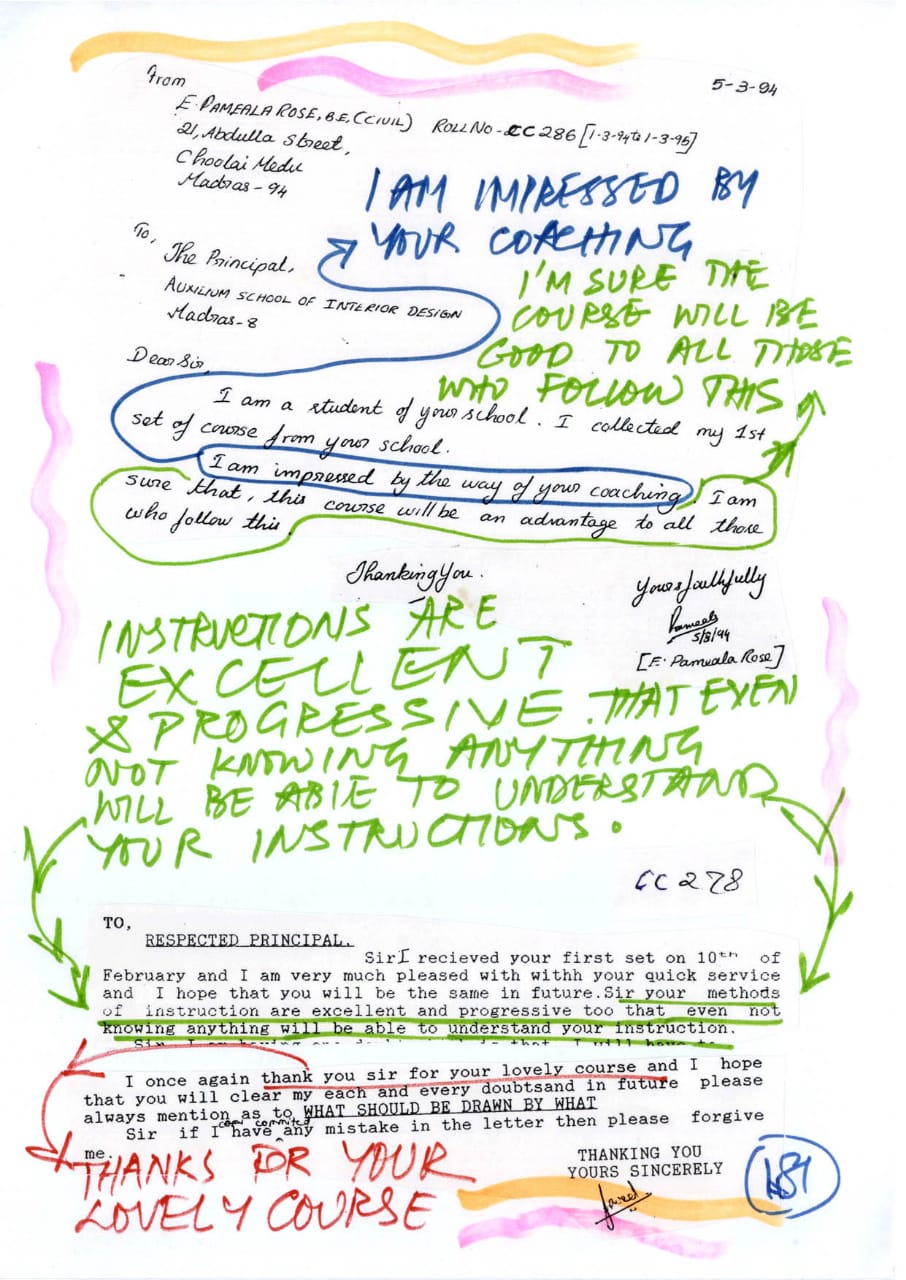 From
5-3-94
E. PAMEALA ROSE, B.E, (CIVIL) ROLL NO - CC 286 [1-3-94 to 1-3-95]
21, Abdulla Street,
Choolai Medu
Madras - 94
I AM IMPRESSED BY
YOUR COACHING
To,
The Principal,
AUXILIUM SCHOOL OF INTERIOR DESIGN
Madras-8
I'M SURE THE
COURSE WILL BE
GOOD TO ALL THOSE
WHO FOLLOW THIS
Dear Sir,
I am a student of your school. I collected my 1st
set of course from your school.
I am impressed by the way of your coaching. I am
sure that, this course will be an advantage to all those
who follow this.
Thanking You.
Yours faithfully
Pameala
5/3/94
[E. Pameala Rose]
INSTRUCTIONS ARE
EXCELLENT
& PROGRESSIVE. THAT EVEN
NOT KNOWING ANYTHING
WILL BE ABLE TO UNDERSTAND
YOUR INSTRUCTIONS.
CC 278
TO,
RESPECTED PRINCIPAL.
Sir I recieved your first set on 10th of
February and I am very much pleased with withh your quick service
and I hope that you will be the same in future.Sir your methods
of instruction are excellent and progressive too that even not
knowing anything will be able to understand your instruction.
I once again thank you sir for your lovely course and I hope
that you will clear my each and every doubtsand in future please
always mention as to WHAT SHOULD BE DRAWN BY WHAT
Sir if I have commited any mistake in the letter then please forgive
me.
THANKING YOU
YOURS SINCERELY
THANKS FOR YOUR
LOVELY COURSE